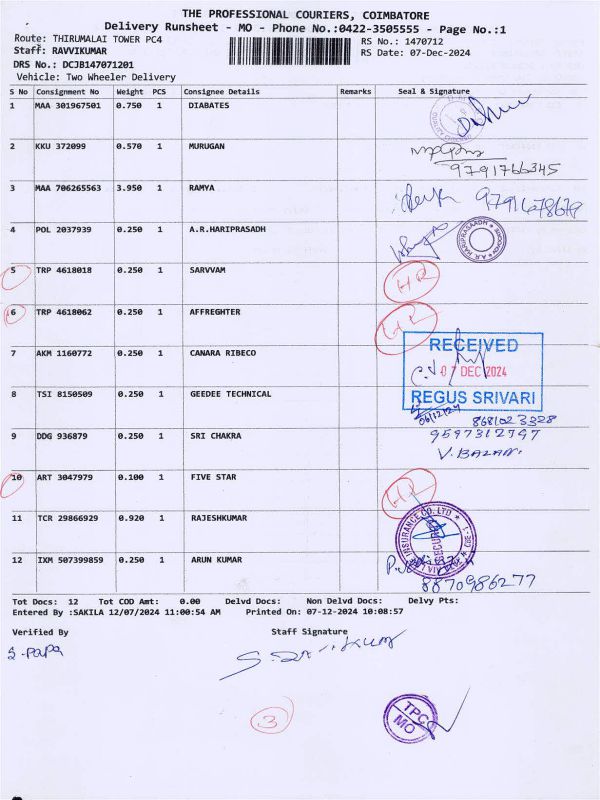 THE PROFESSIONAL COURIERS, COIMBATORE
Delivery Runsheet - MO - Phone No.:0422-3505555 - Page No.:1
Route: THIRUMALAI TOWER PC4 RS No.: 1470712
Staff: RAVVIKUMAR RS Date: 07-Dec-2024
DRS No.: DCJB147071201
Vehicle: Two Wheeler Delivery
S No Consignment No Weight PCS Consignee Details Remarks Seal & Signature
1 MAA 301967501 0.750 1 DIABATES
2 KKU 372099 0.570 1 MURUGAN
9791766345
3 MAA 706265563 3.950 1 RAMYA 9791678679
4 POL 2037939 0.250 1 A.R.HARIPRASADH
5 TRP 4618018 0.250 1 SARVVAM HR
6 TRP 4618062 0.250 1 AFFREGHTER HR
RECEIVED
7 AKM 1160772 0.250 1 CANARA RIBECO
07 DEC 2024
8 TSI 8150509 0.250 1 GEEDEE TECHNICAL REGUS SRIVARI
06/12/24 8681023328
9 DDG 936879 0.250 1 SRI CHAKRA 9597312797
V. BAZAN.
10 ART 3047979 0.100 1 FIVE STAR HR
11 TCR 29866929 0.920 1 RAJESHKUMAR
INSURANCE CO. LTD
12 IXM 507399859 0.250 1 ARUN KUMAR
8870986277
Tot Docs: 12 Tot COD Amt: 0.00 Delvd Docs: Non Delvd Docs: Delvy Pts:
Entered By :SAKILA 12/07/2024 11:00:54 AM Printed On: 07-12-2024 10:08:57
Verified By Staff Signature
S. PaPa
3
TPC
MO